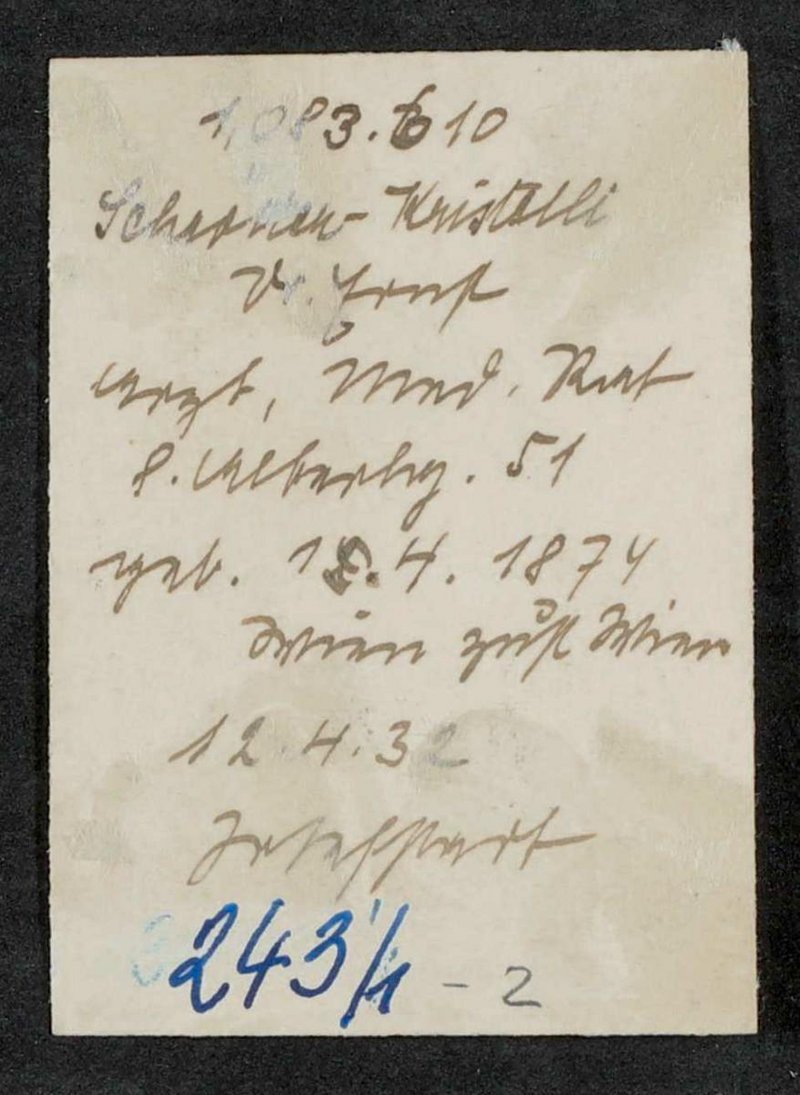 1,083.610
Kristelli
Dr. Ernst
Arzt, Med. Rat
8. Albertg. 51
geb. 15.4. 1874
Wien zust Wien
12.4.32
Josefstadt
243/1 - 2